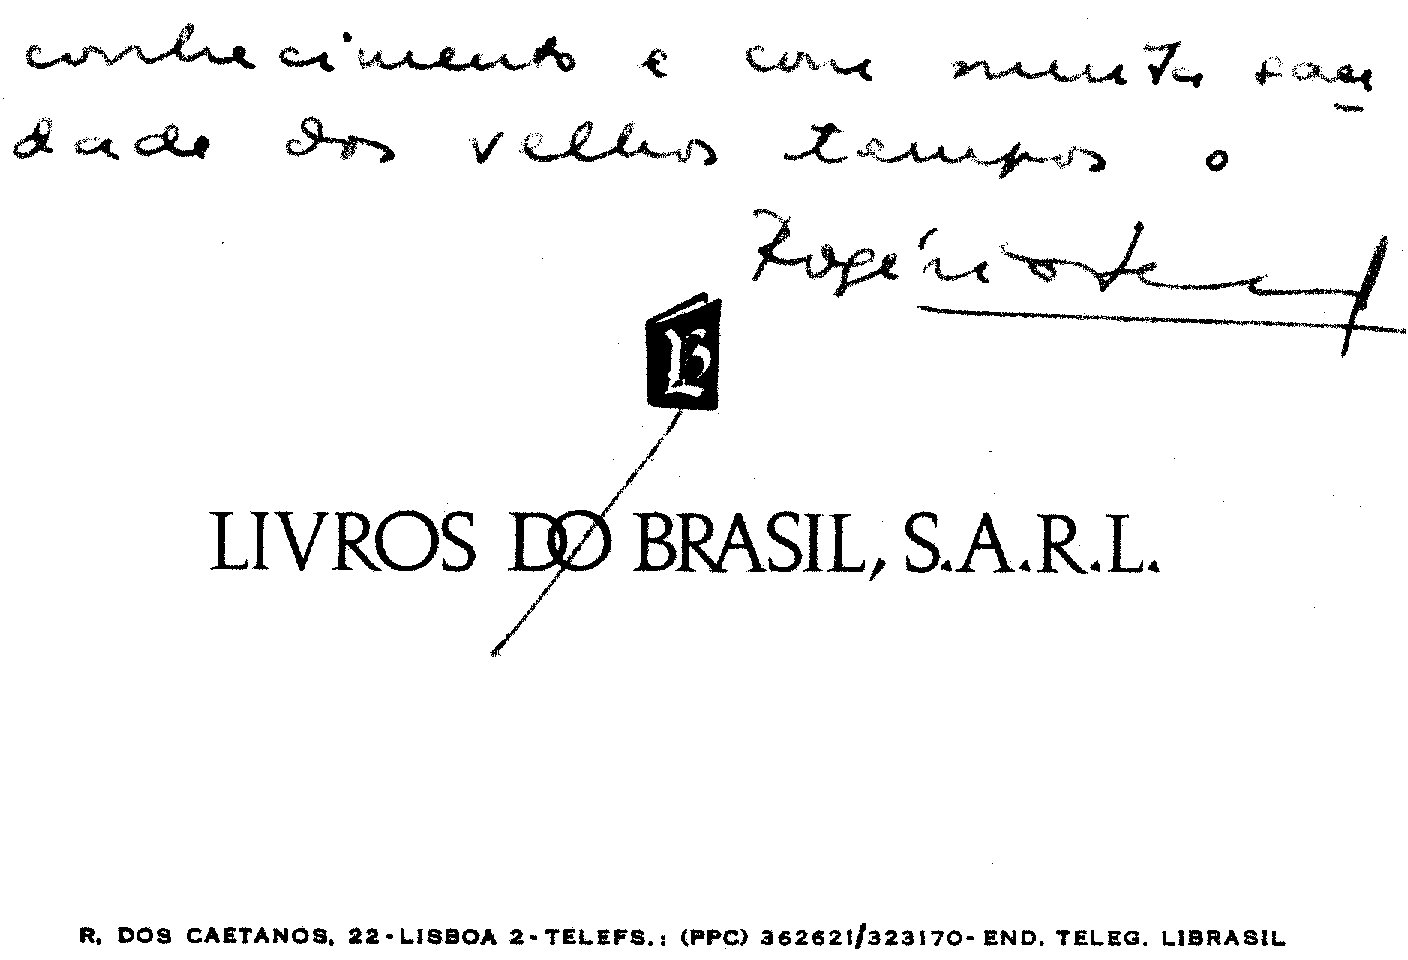 conhecimento e com muita sau
dade dos velhos tempos o
Rogério
LB
LIVROS DO BRASIL, S.A.R.L.
R. DOS CAETANOS, 22-LISBOA 2-TELEFS.: (PPC) 362621/323170-END. TELEG. LIBRASIL